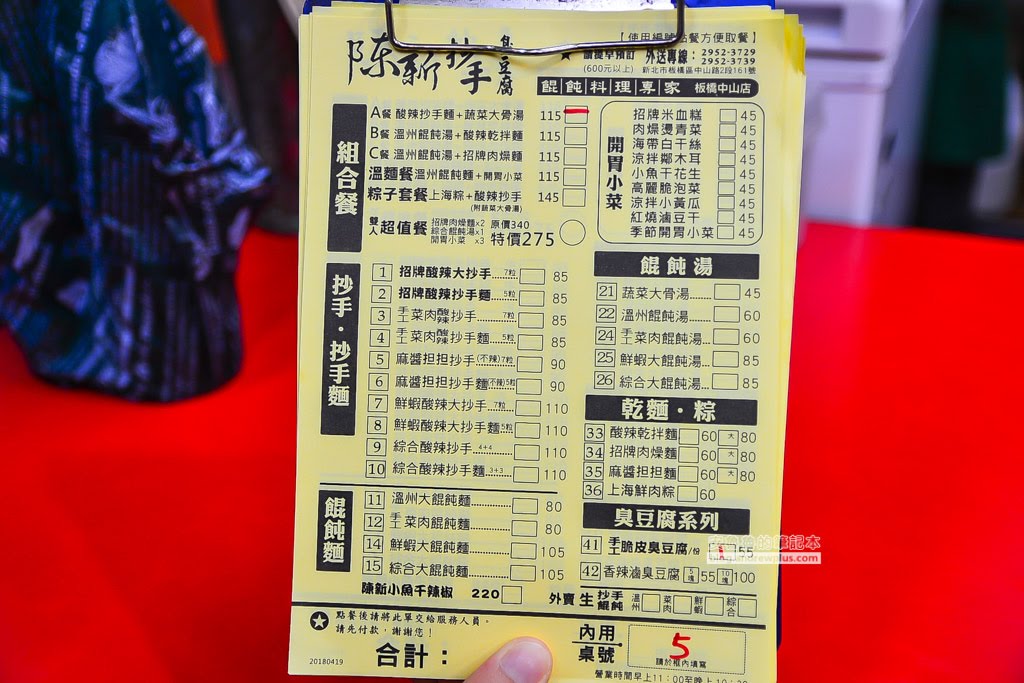 【使用編號點餐方便取餐】
陳新抄手 臭豆腐
請提早預訂 外送專線：2952-3729
2952-3739
(600元以上) 新北市板橋區中山路2段161號
餛飩料理專家 板橋中山店
組合餐
A餐 酸辣抄手麵+蔬菜大骨湯 115
B餐 溫州餛飩湯+酸辣乾拌麵 115
C餐 溫州餛飩湯+招牌肉燥麵 115
溫麵餐 溫州餛飩麵+開胃小菜 115
粽子套餐 上海粽+酸辣抄手 145
(附蔬菜大骨湯)
雙人超值餐 招牌肉燥麵x2 綜合餛飩湯x1 開胃小菜 x3 原價340 特價275
開胃小菜
招牌米血糕 45
肉燥燙青菜 45
海帶白干絲 45
涼拌鄰木耳 45
小魚干花生 45
高麗脆泡菜 45
涼拌小黃瓜 45
紅燒滷豆干 45
季節開胃小菜 45
抄手·抄手麵
1 招牌酸辣大抄手 7粒 85
2 招牌酸辣抄手麵 5粒 85
3 手工菜肉酸辣抄手 7粒 85
4 手工菜肉酸辣抄手麵 5粒 85
5 麻醬担担抄手(不辣)7粒 90
6 麻醬担担抄手麵(不辣)5粒 90
7 鮮蝦酸辣大抄手 7粒 110
8 鮮蝦酸辣大抄手麵 5粒 110
9 綜合酸辣抄手 4+4 110
10 綜合酸辣抄手麵 3+3 110
餛飩湯
21 蔬菜大骨湯 45
22 溫州餛飩湯 60
24 手工菜肉餛飩湯 60
25 鮮蝦大餛飩湯 85
26 綜合大餛飩湯 85
乾麵·粽
33 酸辣乾拌麵 60 大 80
34 招牌肉燥麵 60 大 80
35 麻醬担担麵 60 大 80
36 上海鮮肉粽 60
餛飩麵
11 溫州大餛飩麵 80
12 手工菜肉餛飩麵 80
14 鮮蝦大餛飩麵 105
15 綜合大餛飩麵 105
陳新小魚干辣椒 220
臭豆腐系列
41 手工脆皮臭豆腐/份 55
42 香辣滷臭豆腐 5塊 55 10塊 100
外賣 生 抄手 餛飩 溫州 菜肉 鮮蝦 綜合
點餐後請將此單交給服務人員。
請先付款，謝謝您！
合計：
內用桌號 5
請於框內填寫
20180419
營業時間早上11：00至晚上10:30